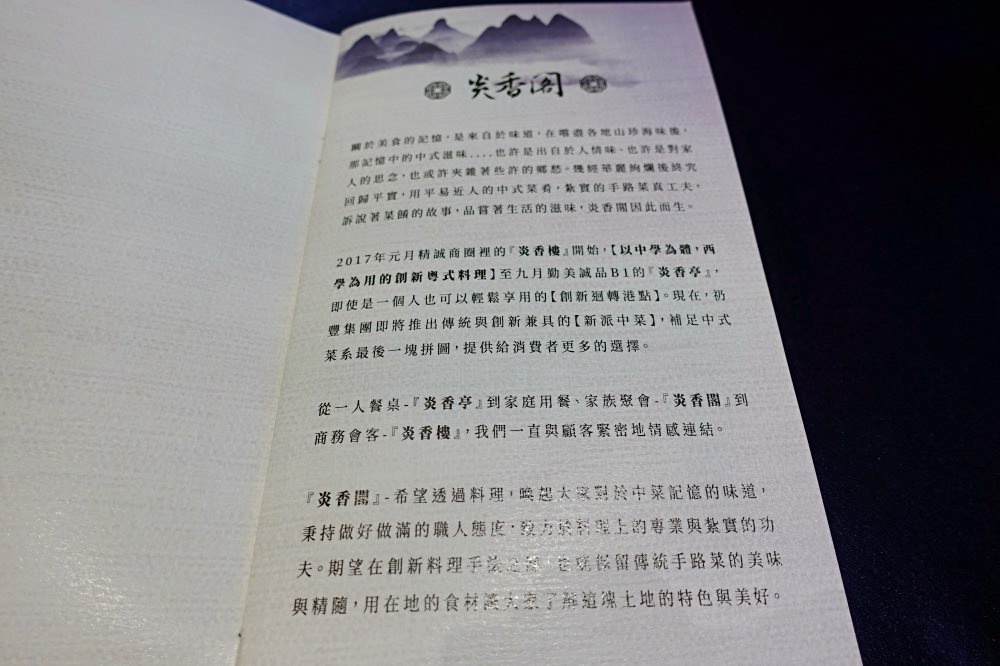 炎香閣
關於美食的記憶，是來自於味道，在嚐盡各地山珍海味後，
那記憶中的中式滋味....也許是出自於人情味、也許是對家
人的思念，也或許夾雜著些許的鄉愁。幾經華麗絢爛後終究
回歸平實，用平易近人的中式菜肴，紮實的手路菜真工夫，
訴說著菜餚的故事，品嘗著生活的滋味，炎香閣因此而生。
2017年元月精誠商圈裡的『炎香樓』開始，【以中學為體，西
學為用的創新粵式料理】至九月勤美誠品B1的『炎香亭』，
即使是一個人也可以輕鬆享用的【創新迴轉港點】。現在，礽
豐集團即將推出傳統與創新兼具的【新派中菜】，補足中式
菜系最後一塊拼圖，提供給消費者更多的選擇。
從一人餐桌-『炎香亭』到家庭用餐、家族聚會-『炎香閣』到
商務會客-『炎香樓』，我們一直與顧客緊密地情感連結。
『炎香閣』-希望透過料理，喚起大家對於中菜記憶的味道，
秉持做好做滿的職人態度，致力於料理上的專業與紮實的功
夫。期望在創新料理手法之際，也能保留傳統手路菜的美味
與精隨，用在地的食材讓大家了解這塊土地的特色與美好。